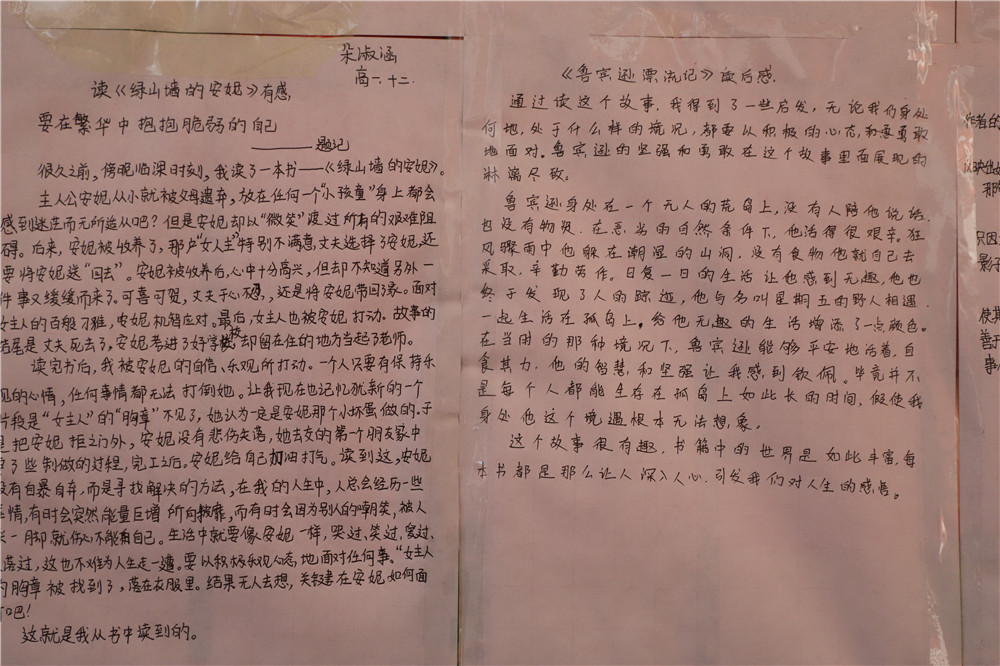 朵淑涵
高一.十二.
读《绿山墙的安妮》有感.
要在繁华中抱抱脆弱的自己
——题记
很久之前,傍晚临深时刻,我读了一本书——《绿山墙的安妮》。
主人公安妮从小就被父母遗弃,放在任何一个“小孩童”身上都会
感到迷茫而无所适从吧?但是安妮却以“微笑”渡过所有的艰难阻
碍。后来,安妮被收养了,那户“女人主”特别不满意丈夫选择了安妮,还
要将安妮送“回去”。安妮被收养后,心中十分高兴,但却不知道另外一
件事又缓缓而来了。可喜可贺,丈夫于心不忍,还是将安妮带回家。面对
女主人的百般刁难,安妮机智应对。最后,女主人也被安妮打动。故事的
结尾是丈夫死去了,安妮考进了好学校,却留在住的地方当起了老师。
读完书后,我被安妮的自信、乐观所打动。一个人只要有保持乐
观的心情,任何事情都无法打倒她。让我现在也记忆犹新的一个
片段是“女主人”的“胸章”不见了,她认为一定是安妮那个小坏蛋做的.于
是把安妮拒之门外,安妮没有悲伤失落,她去交的第一个朋友家中
了些制做的过程,完工之后。安妮给自己加油打气。读到这,安妮
没有自暴自弃,而是寻找解决的方法,在我的人生中,人总会经历一些
事情,有时会突然能量巨增所向披靡,而有时会因为别人的嘲笑,被人
一脚就伤心不能有自己。生活中就要像安妮一样,哭过、笑过、爱过、
落过,这也不难为人生走一遭。要以积极乐观心态,地面对任何事。“女主人
的胸章被找到了,落在衣服里。结果无人去想,关键在安妮如何面
吧!
这就是我从书中读到的。
《鲁宾逊漂流记》读后感.
通过读这个故事.我得到了一些启发,无论我们身处
何地,处于什么样的境况,都要以积极的心态,和要勇敢
地面对。鲁宾逊的坚强和勇敢在这个故事里面展现的
淋漓尽致。
鲁宾逊身处在一个无人的荒岛上,没有人陪他说话.
也没有物资.在恶劣的自然条件下,他活得很艰辛。狂
风骤雨中他躲在潮湿的山洞.没有食物他就自己去
采取.辛勤劳作。日复一日的生活让他感到无趣,他也
终于发现了人的踪迹,他与名叫星期五的野人相遇.
一起生活在孤岛上。给他无趣的生活增添了一点颜色。
在当时的那种境况下,鲁宾逊能够平安地活着,自
食其力.他的智慧.和坚强让我感到钦佩。毕竟并不
是每个人都能生存在孤岛上如此长的时间,假使我
身处他这个境遇根本无法想象。
这个故事很有趣.书籍中的世界是如此丰富,每
本书都是那么让人深入人心.引发我们对人生的感悟。
作者的
以映出
那
只因
影子
使其
善于
事